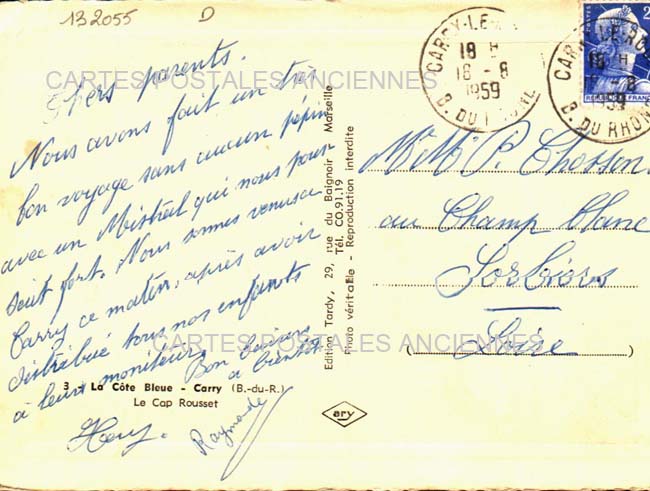 132055 D
CARTES POSTALES ANCIENNES
Chers parents.
Nous avons fait un très
bon voyage sans aucun pépin
avec un Mistral qui nous pous-
sait fort. Nous sommes venus a
Carry ce matin, après avoir
distribué tous nos enfants
à leurs moniteurs. Bon
à bientôt
Raymonde
CARTES POSTALES ANCIENNES
3 - La Côte Bleue - Carry (B.-du-R.)
Le Cap Rousset
Edition Tardy, 29, rue du Baignoir Marseille
Tél. CO.91.19
Photo véritable - Reproduction interdite
ary
CARRY-LE-
18 H
18 - 8
1959
B. DU RHONE
CARRY-LE-ROU
18 H
- 8
59
B. DU RHONE
POSTES
2
REPUBLIQUE FRANCAISE
M. Mme P. Chossen
au Champ Blanc
Sorbiers
Loire